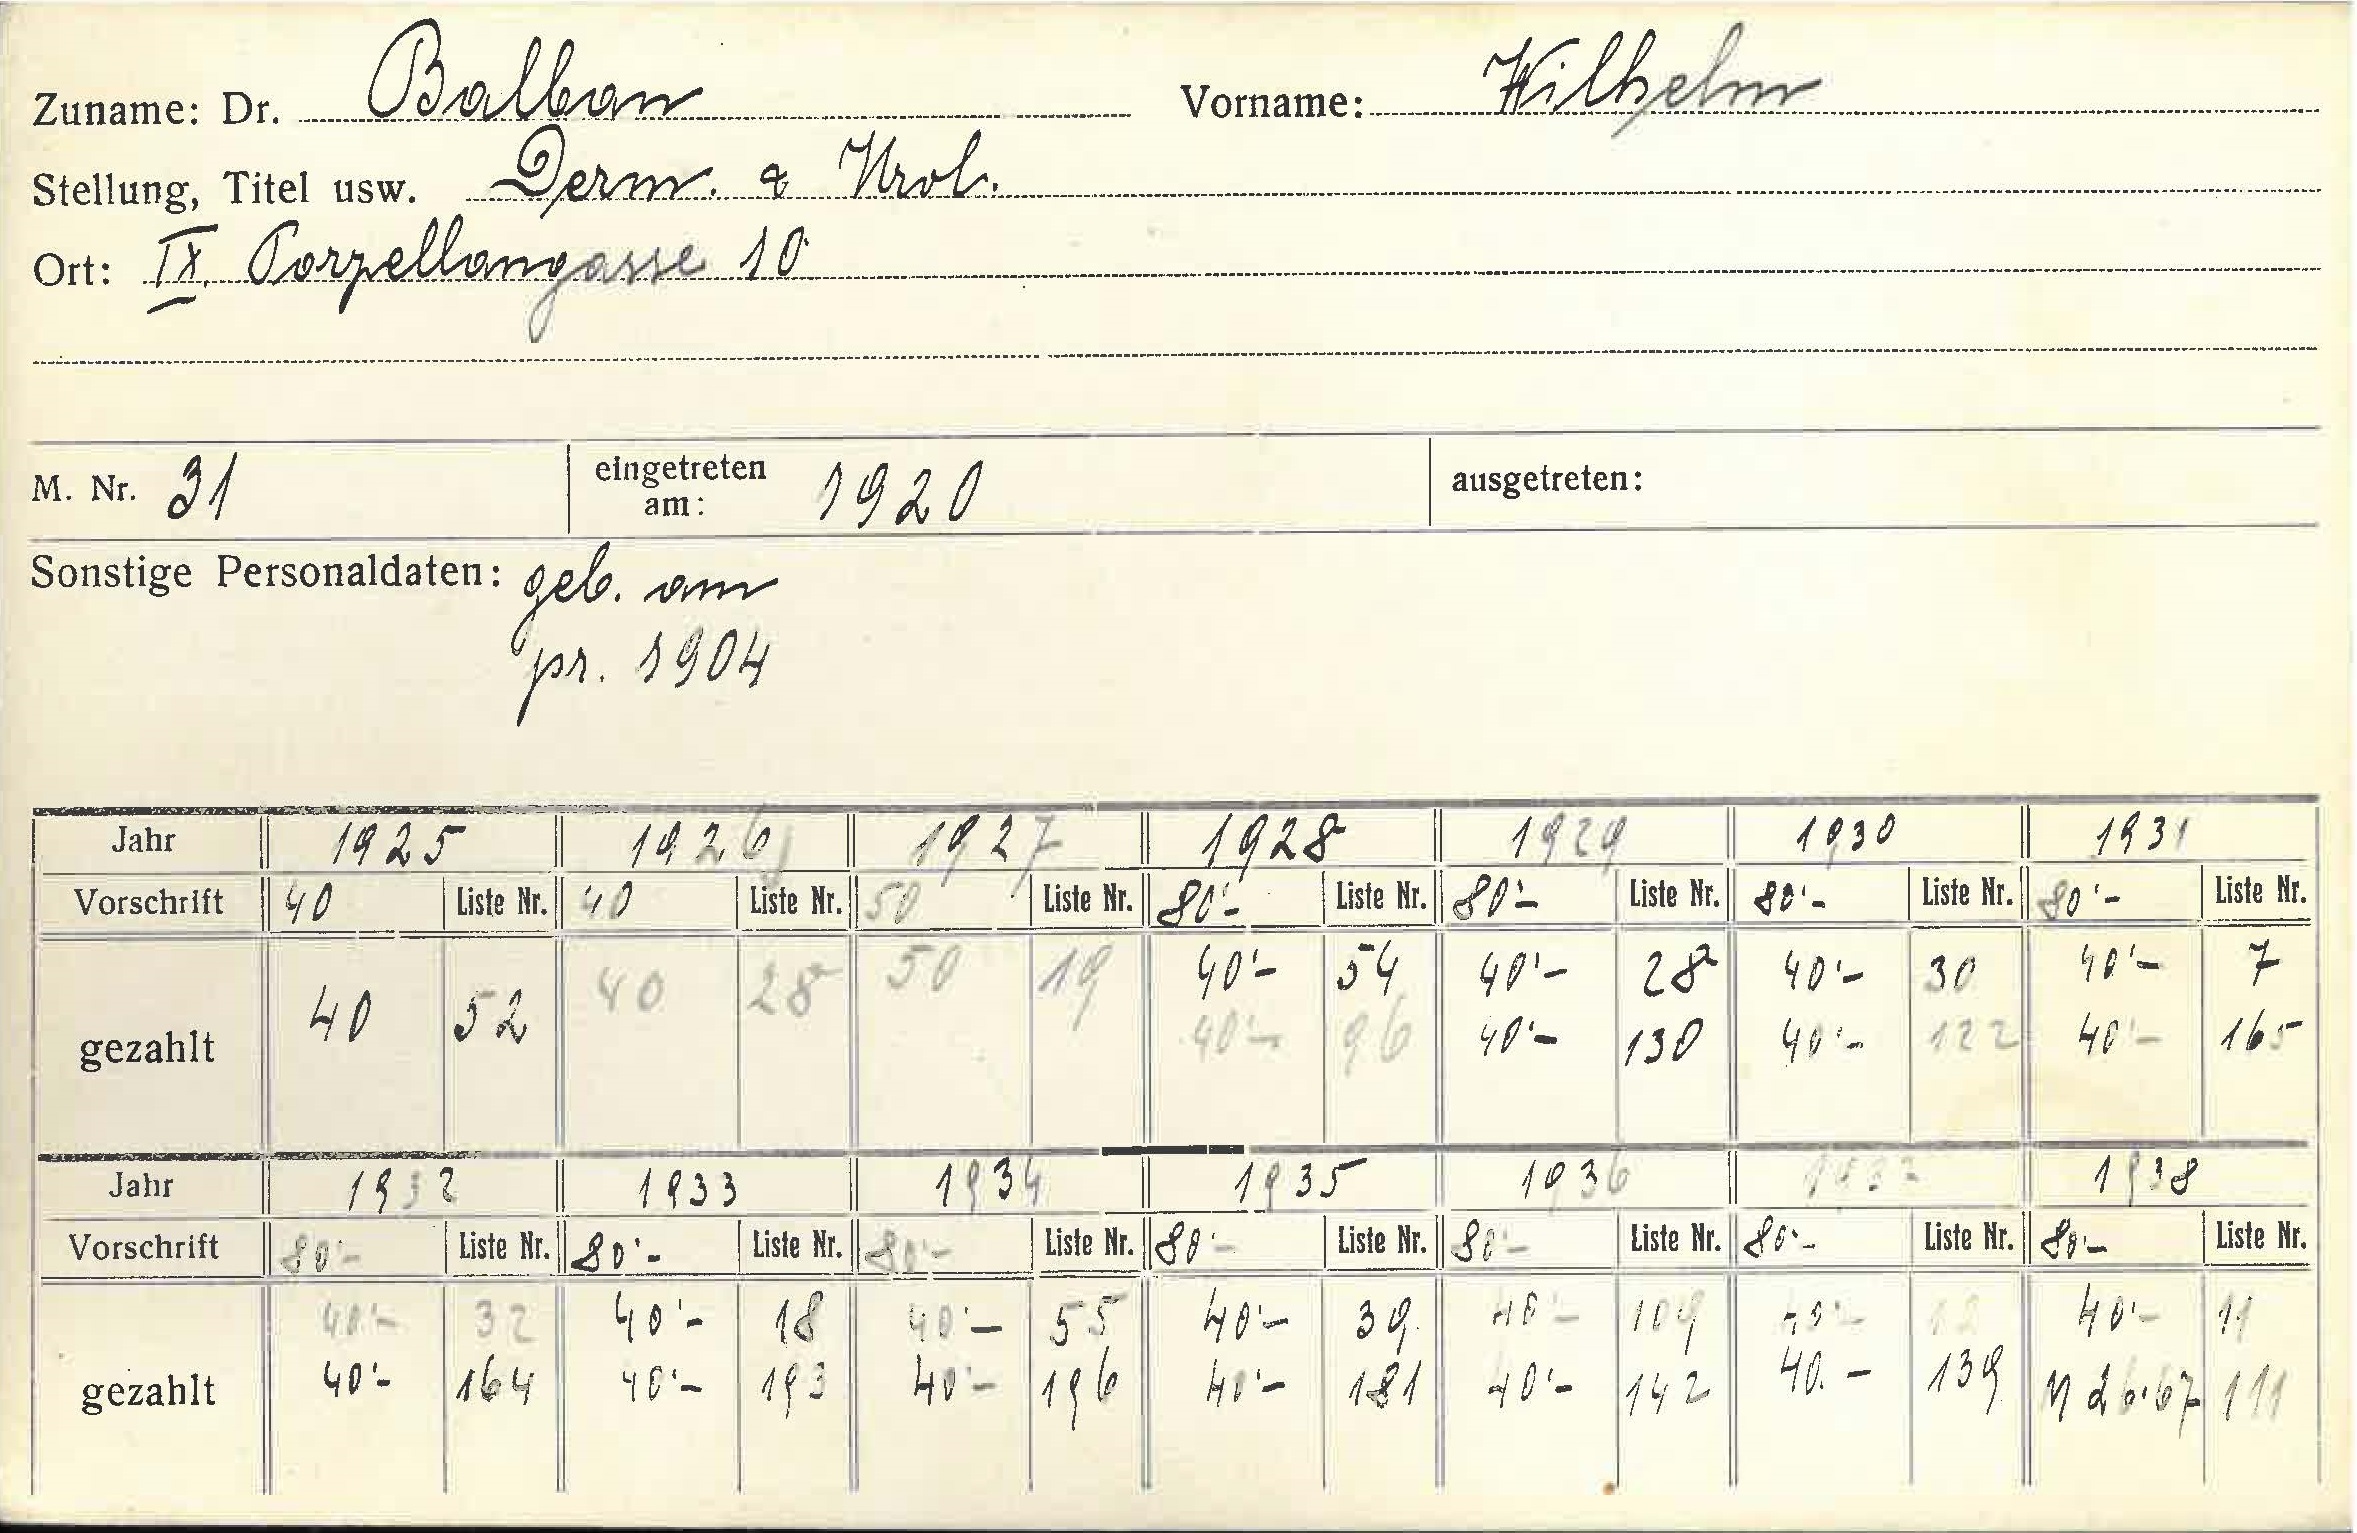 Zuname: Dr. Balban Vorname: Wilhelm
Stellung, Titel usw. Derm. & Urol.
Ort: IX. Porzellangasse 10
M. Nr. 31 eingetreten am: 1920 ausgetreten:
Sonstige Personaldaten: geb. am
pr. 1904
Jahr 1925 1926 1927 1928 1929 1930 1931
Vorschrift 40 Liste Nr. 40 Liste Nr. 50 Liste Nr. 80'- Liste Nr. 80'- Liste Nr. 80'- Liste Nr. 80'- Liste Nr.
gezahlt 40 52 40 28 50 19 40'- 54 40'- 28 40'- 30 40'- 7
40'- 96 40'- 130 40'- 122 40'- 165
Jahr 1932 1933 1934 1935 1936 1937 1938
Vorschrift 80'- Liste Nr. 80'- Liste Nr. 80'- Liste Nr. 80'- Liste Nr. 80'- Liste Nr. 80'- Liste Nr. 80'- Liste Nr.
40'- 32 40'- 18 40'- 55 40'- 39 40'- 109 40'- 12 40'- 11
gezahlt 40'- 164 40'- 193 40'- 196 40'- 181 40'- 142 40.- 139 26.67 111